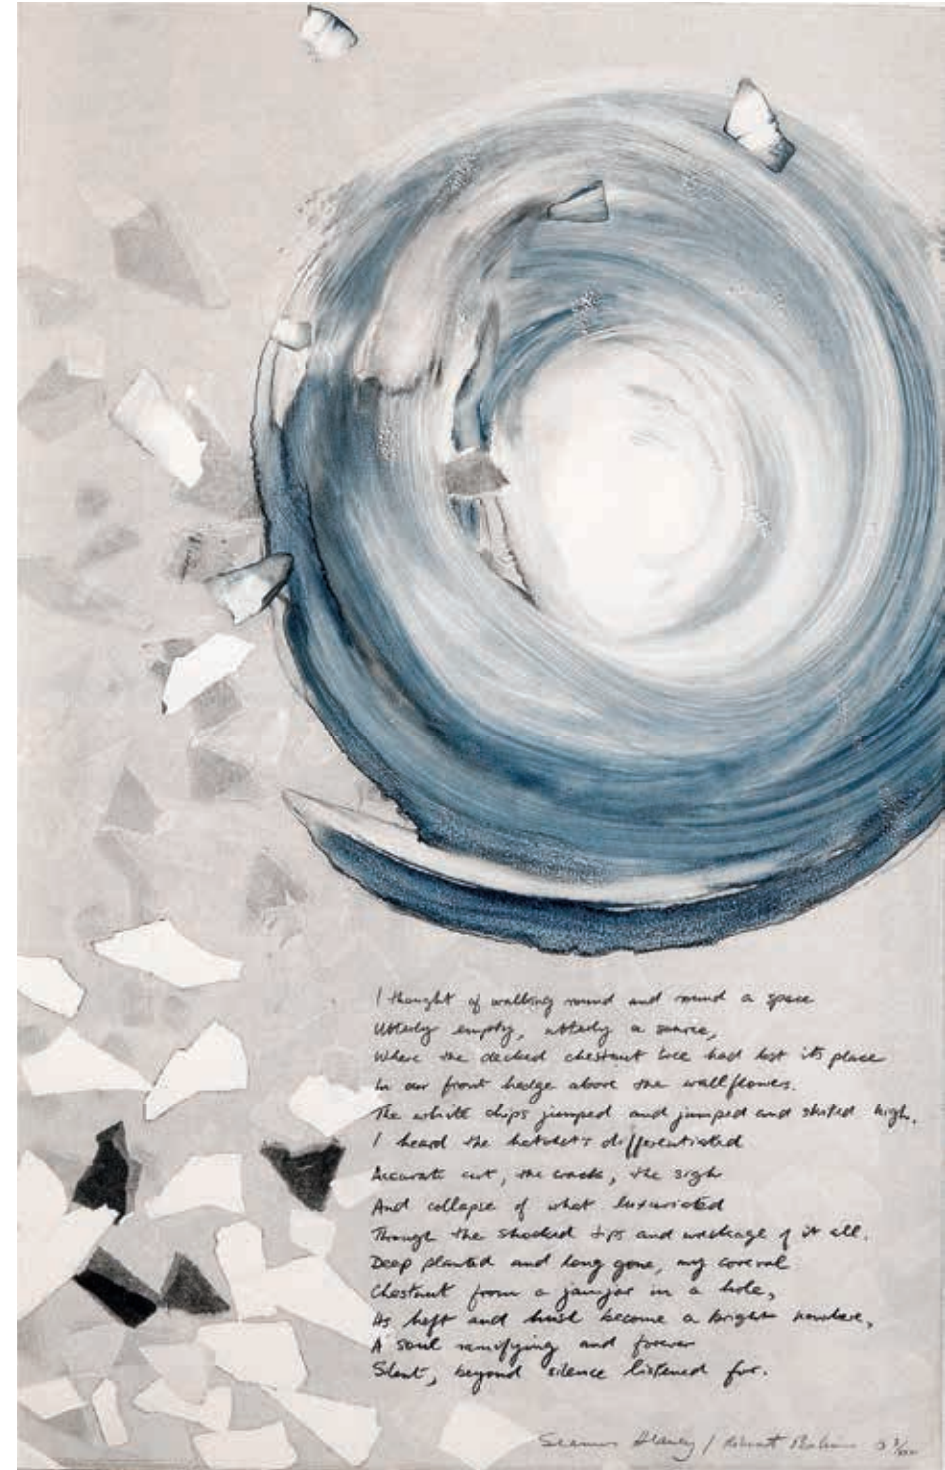 I thought of walking round and round a space
Utterly empty, utterly a source,
Where the decked chestnut tree had lost its place
In our front hedge above the wallflowers.
The white chips jumped and jumped and skited high.
I heard the hatchet's differentiated
Accurate cut, the crack, the sigh
And collapse of what luxuriated
Through the shocked tips and wreckage of it all.
Deep planted and long gone, my coeval
Chestnut from a jamjar in a hole,
Its heft and hush become a bright nowhere,
A soul ramifying and forever
Silent, beyond silence listened for.
Seamus Heaney /